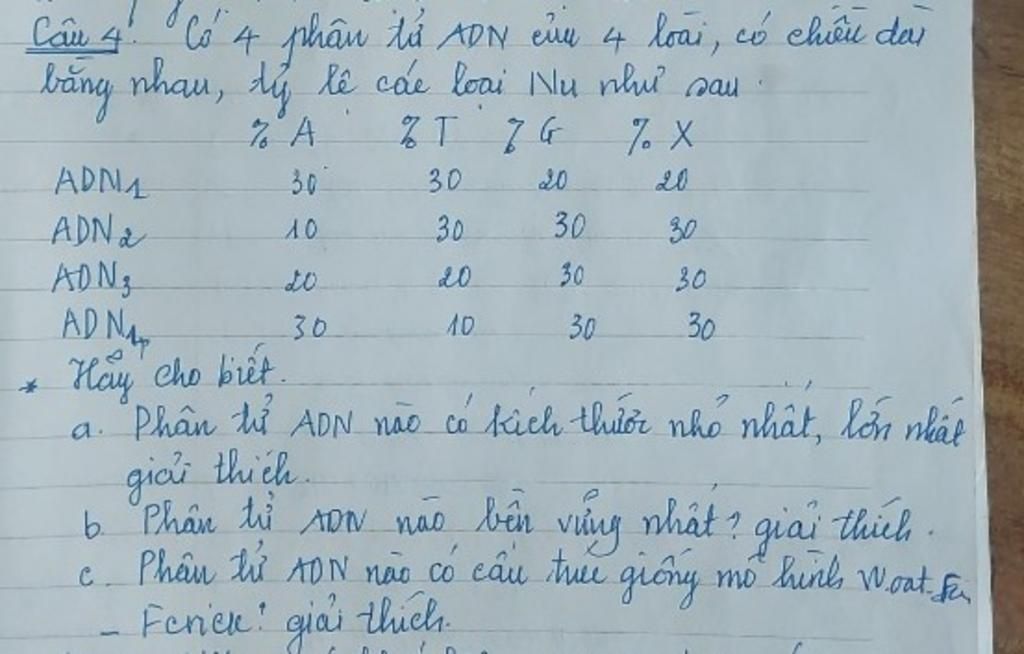 Câu 4: Có 4 phân tử ADN của 4 loài, có chiều dài
bằng nhau, tỷ lệ các loại Nu như sau.
% A % T % G % X
ADN1 30 30 20 20
ADN2 10 30 30 30
ADN3 20 20 30 30
ADN4 30 10 30 30
* Hãy cho biết.
a. Phân tử ADN nào có kích thước nhỏ nhất, lớn nhất
giải thích.
b. Phân tử ADN nào bền vững nhất? giải thích.
c. Phân tử ADN nào có cấu trúc giống mô hình
giải thích.